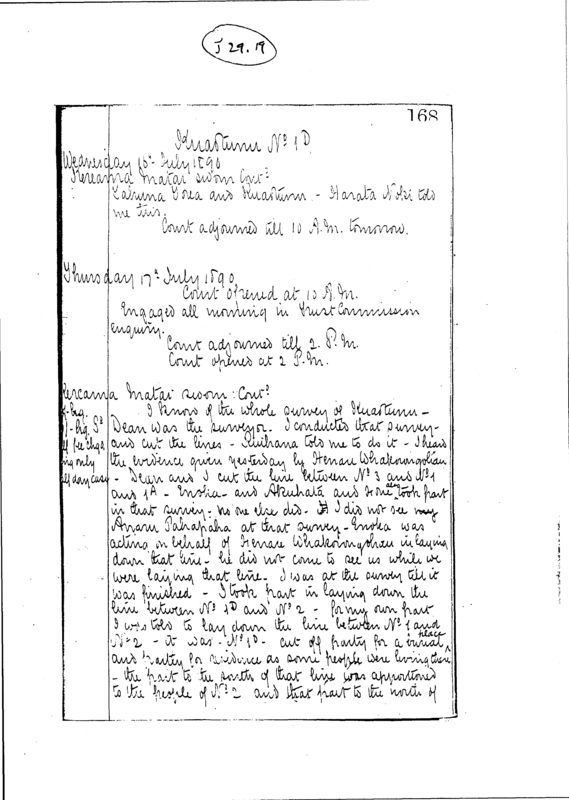 J 29.19
168
Kuaotunu No 1D
Wednesday 16th July 1890
Hereama Matai sworn Cont:
and Kuaotunu - told
me this.
Court adjourned till 10 A.M. tomorrow.
Thursday 17th July 1890
Court opened at 10 A.M.
Engaged all morning in Trust Commission
enquiry.
Court adjourned till 2. P.M.
Court opened at 2 P.M.
Matai sworn: Cont:
I know of the whole survey of Kuaotunu -
Dean was the surveyor. I conducted that survey-
and cut the lines - told me to do it - I heard
the evidence given yesterday by Henare
only
day case - Dean and I cut the line between No 3 and No 1
and 1A - and Akuhata and took part
in that survey - no one else did. I did not see my
at that survey - was
acting on behalf of Henare in laying
down that line - he did not come to see us while we
were laying that line. I was at the survey till it
was finished - I took part in laying down the
line between No 1D and No 2 - for my own part
I was told to lay down the line between No 1 and
No 2 - it was No 1D - cut off partly for a burial place
and partly for residence as some people were living there
- the part to the south of that line was apportioned
to the people of No 2 and that part to the north of